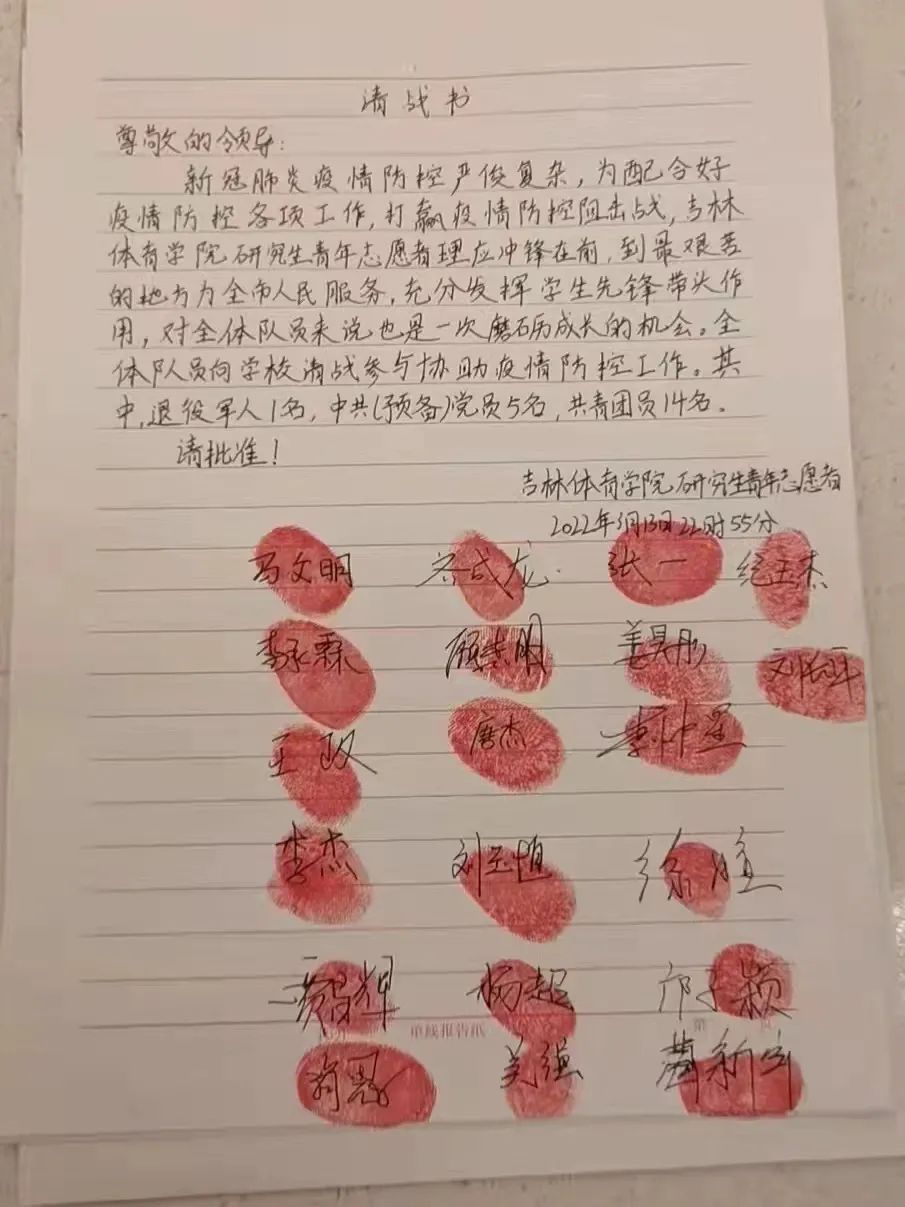 请战书
尊敬的领导:
新冠肺炎疫情防控严俊复杂,为配合好
疫情防控各项工作,打赢疫情防控阻击战,吉林
体育学院研究生青年志愿者理应冲锋在前,到最艰苦
的地方为全市人民服务,充分发挥学生先锋带头作
用,对全体队员来说也是一次磨砺成长的机会。全
体队员向学校请战参与协助疫情防控工作。其
中,退役军人1名,中共(预备)党员5名,共青团员14名。
请批准!
吉林体育学院研究生青年志愿者
2022年3月13日22时55分
马文明 张一
李永霖 顾志明 姜昊彤
王政 唐杰 李仲星
李杰 徐
黄昌辉 杨超 邝子颖
单线报告纸 第
姜强